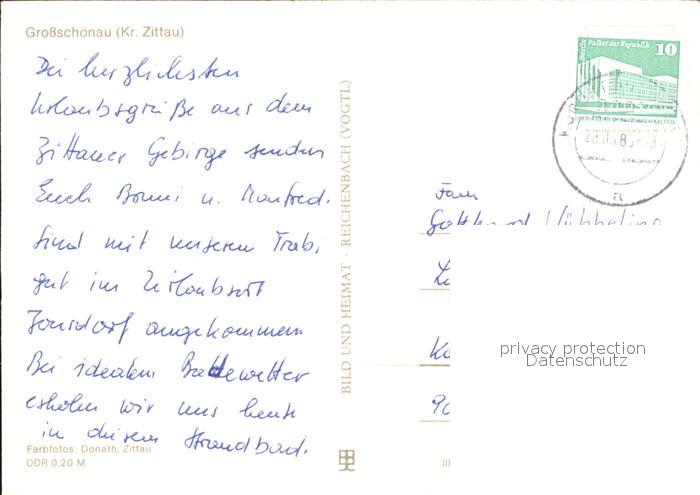 Großschönau (Kr. Zittau)
Die herzlichsten
Urlaubsgrüße aus dem
Zittauer Gebirge senden
Euch Bruni u. Manfred.
Sind mit unserem Trabi
gut im Urlaubsort
Jonsdorf angekommen
Bei idealem Badewetter
erholen wir uns heute
in diesem Strandbad.
Farbfotos: Donath, Zittau
DDR 0,20 M
BILD UND HEIMAT · REICHENBACH (VOGTL)
Berlin Palast der Republik 10
a
Fam
privacy protection
Datenschutz
III